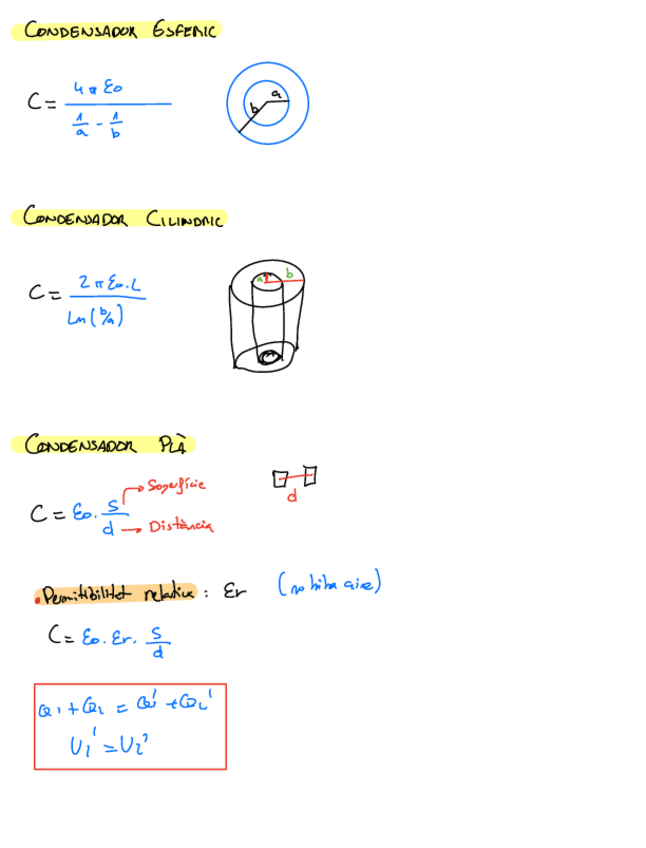 CONDENSADOR ESFERIC
C = 4πε0 / (1/a - 1/b)
a
b
CONDENSADOR CILINDRIC
C = 2πε0.L / Ln(b/a)
a
b
CONDENSADOR PLÀ
C = ε0. S/d
Superfície
Distància
d
Permitibilitat relativa : εr (no hi ha aire)
C = ε0. εr. S/d
Q1 + Q2 = Q1' + Q2'
U1' = U2'